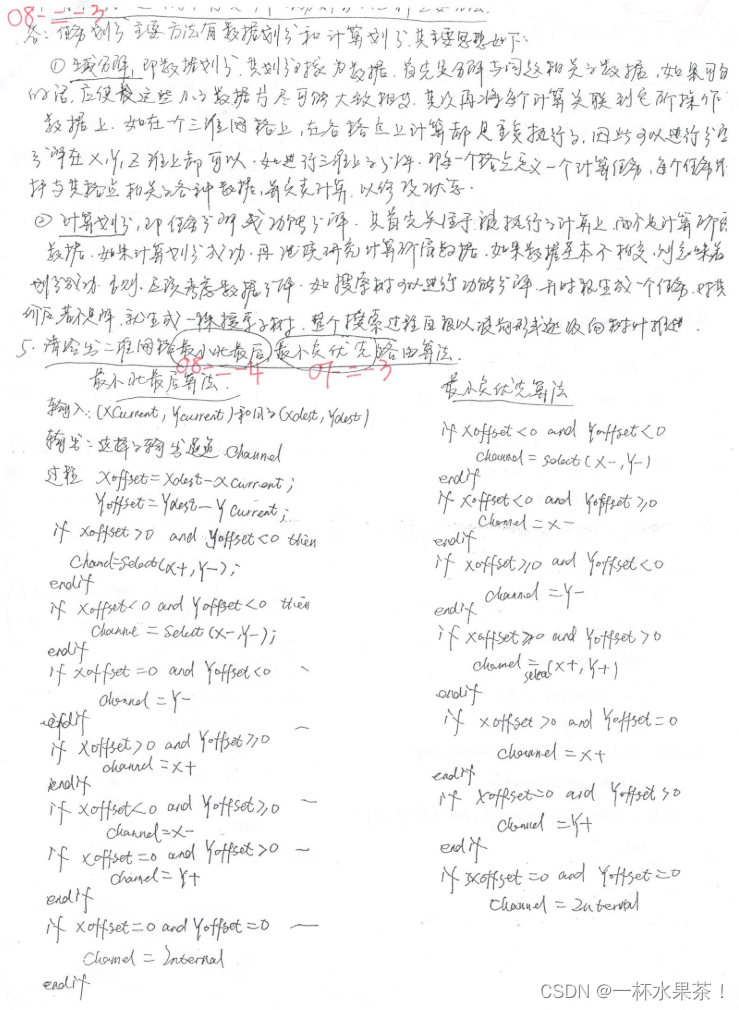 08-二-3
答：任务划分主要方法有数据划分和计算划分，其主要思想如下：
① 域分解，即数据划分，其划分对象为数据，首先是分解与问题相关的数据，如果可能
的话，应使这些小的数据片尽可能大致相等。其次再将每个计算关联到它所操作
数据上。如在一个三维网格上，在各格点上计算都是重复执行的，因此可以进行分
分解在X,Y,Z维上都可以，如进行三维上的分解，即每一个格点定义一个计算任务，每个任务维
持与其格点相关的各种数据，并负责计算，以修改状态。
② 计算划分，即任务分解或功能分解，其首先关注于被执行的计算上，而不是计算所需
数据，如果计算划分成功，再继续研究计算所需的数据，如果数据基本不相交，则意味着
划分成功，否则，应该考虑数据分解。如搜索树可以进行功能分解，开始根生成一个任务，对其
评价后若不是解，就生成一棵搜索子树，整个搜索过程自根以波前形式逐级向树叶推进。
5. 请给出二维网格最小北最后，最小负优先路由算法。
08-二-4 07-二-3
最小北最后算法.
输入：(Xcurrent, Ycurrent)和目的(Xdest, Ydest)
输出：选择的输出通道 Channel
过程 Xoffset=Xdest-Xcurrent;
Yoffset=Ydest-Ycurrent;
if Xoffset>0 and Yoffset<0 then
Channel=Select(X+,Y-);
endif
if Xoffset<0 and Yoffset<0 then
Channe = Select(X-,Y-);
endif
if Xoffset=0 and Yoffset<0
Channel=Y-
endif
if Xoffset>0 and Yoffset≥0
channel=X+
endif
if Xoffset<0 and Yoffset≥0
Channel=X-
if Xoffset=0 and Yoffset>0
Channel=Y+
endif
if Xoffset=0 and Yoffset=0
Channel = Internal
endif
最小负优先算法
if Xoffset<0 and Yoffset<0
Channel=select(X-,Y-)
endif
if Xoffset<0 and Yoffset≥0
Channel=X-
endif
if Xoffset≥0 and Yoffset<0
Channel=Y-
endif
if Xoffset>0 and Yoffset>0
channel=select(X+,Y+)
endif
if Xoffset>0 and Yoffset=0
Channel=X+
endif
if Xoffset=0 and Yoffset>0
Channel=Y+
endif
if Xoffset=0 and Yoffset=0
Channel=Internal
CSDN @一杯水果茶！